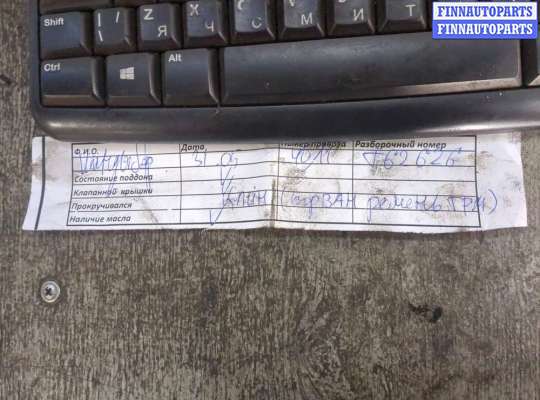 FINNAUTOPARTS
FINNAUTOPARTS
Shift | \ Z Я X Ч C С V М B И N Т
Ctrl Alt
Ф.И.О. Дата Номер привоза Разборочный номер
3 05 4011 Т62626
Состояние поддона V
Клапанной крышки V
Прокручивался Клин (сорван ремень ГРМ)
Наличие масла